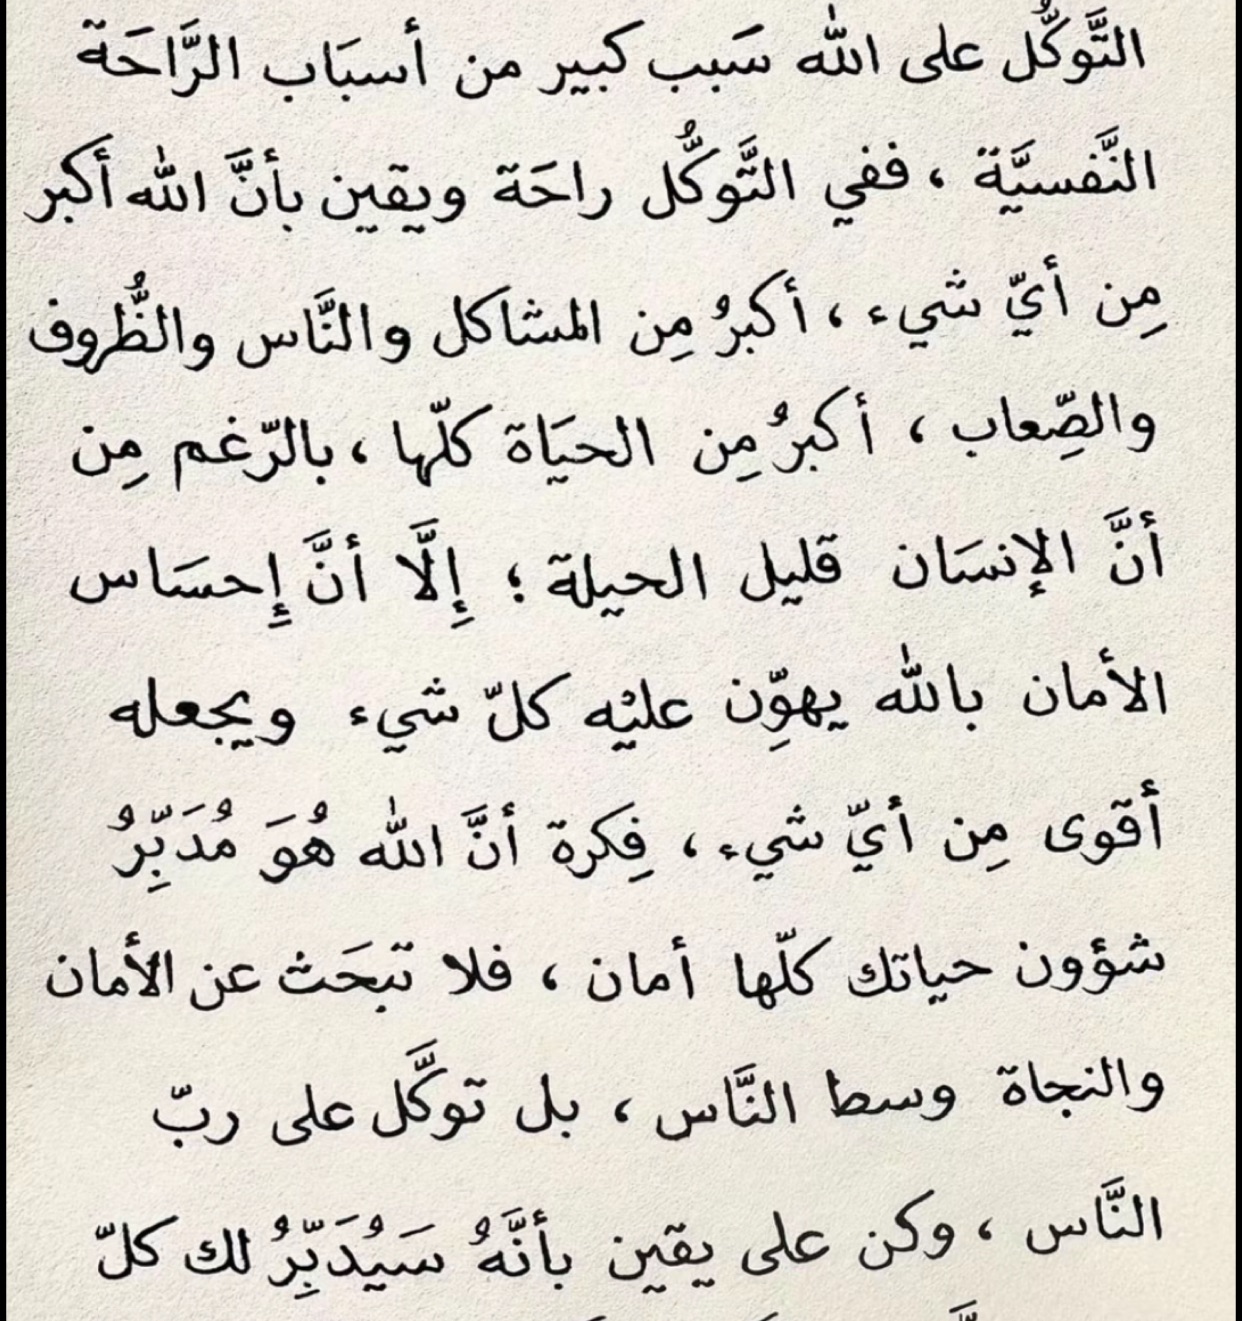 التَّوكُّل على الله سَبب كبير من أسبَاب الرَّاحَة
النَّفسيَّة ، ففي التَّوكُّل راحَة ويقين بأنَّ الله أكبر
مِن أيّ شيء ، أكبرُ مِن المشاكل والنَّاس والظُّروف
والصِّعاب ، أكبرُ مِن الحيَاة كلّها ، بالرّغم مِن
أنَّ الإنسَان قليل الحيلة ؛ إِلَّا أنَّ إِحسَاس
الأمان بالله يهوِّن عليْه كلّ شيء ويجعله
أقوى مِن أيّ شيء ، فِكرة أنَّ الله هُوَ مُدَبِّرُ
شؤون حياتك كلّها أمان ، فلا تبحَث عن الأمان
والنجاة وسط النَّاس ، بل توكَّل على ربّ
النَّاس ، وكن على يقين بأنَّهُ سَيُدَبِّرُ لك كلّ